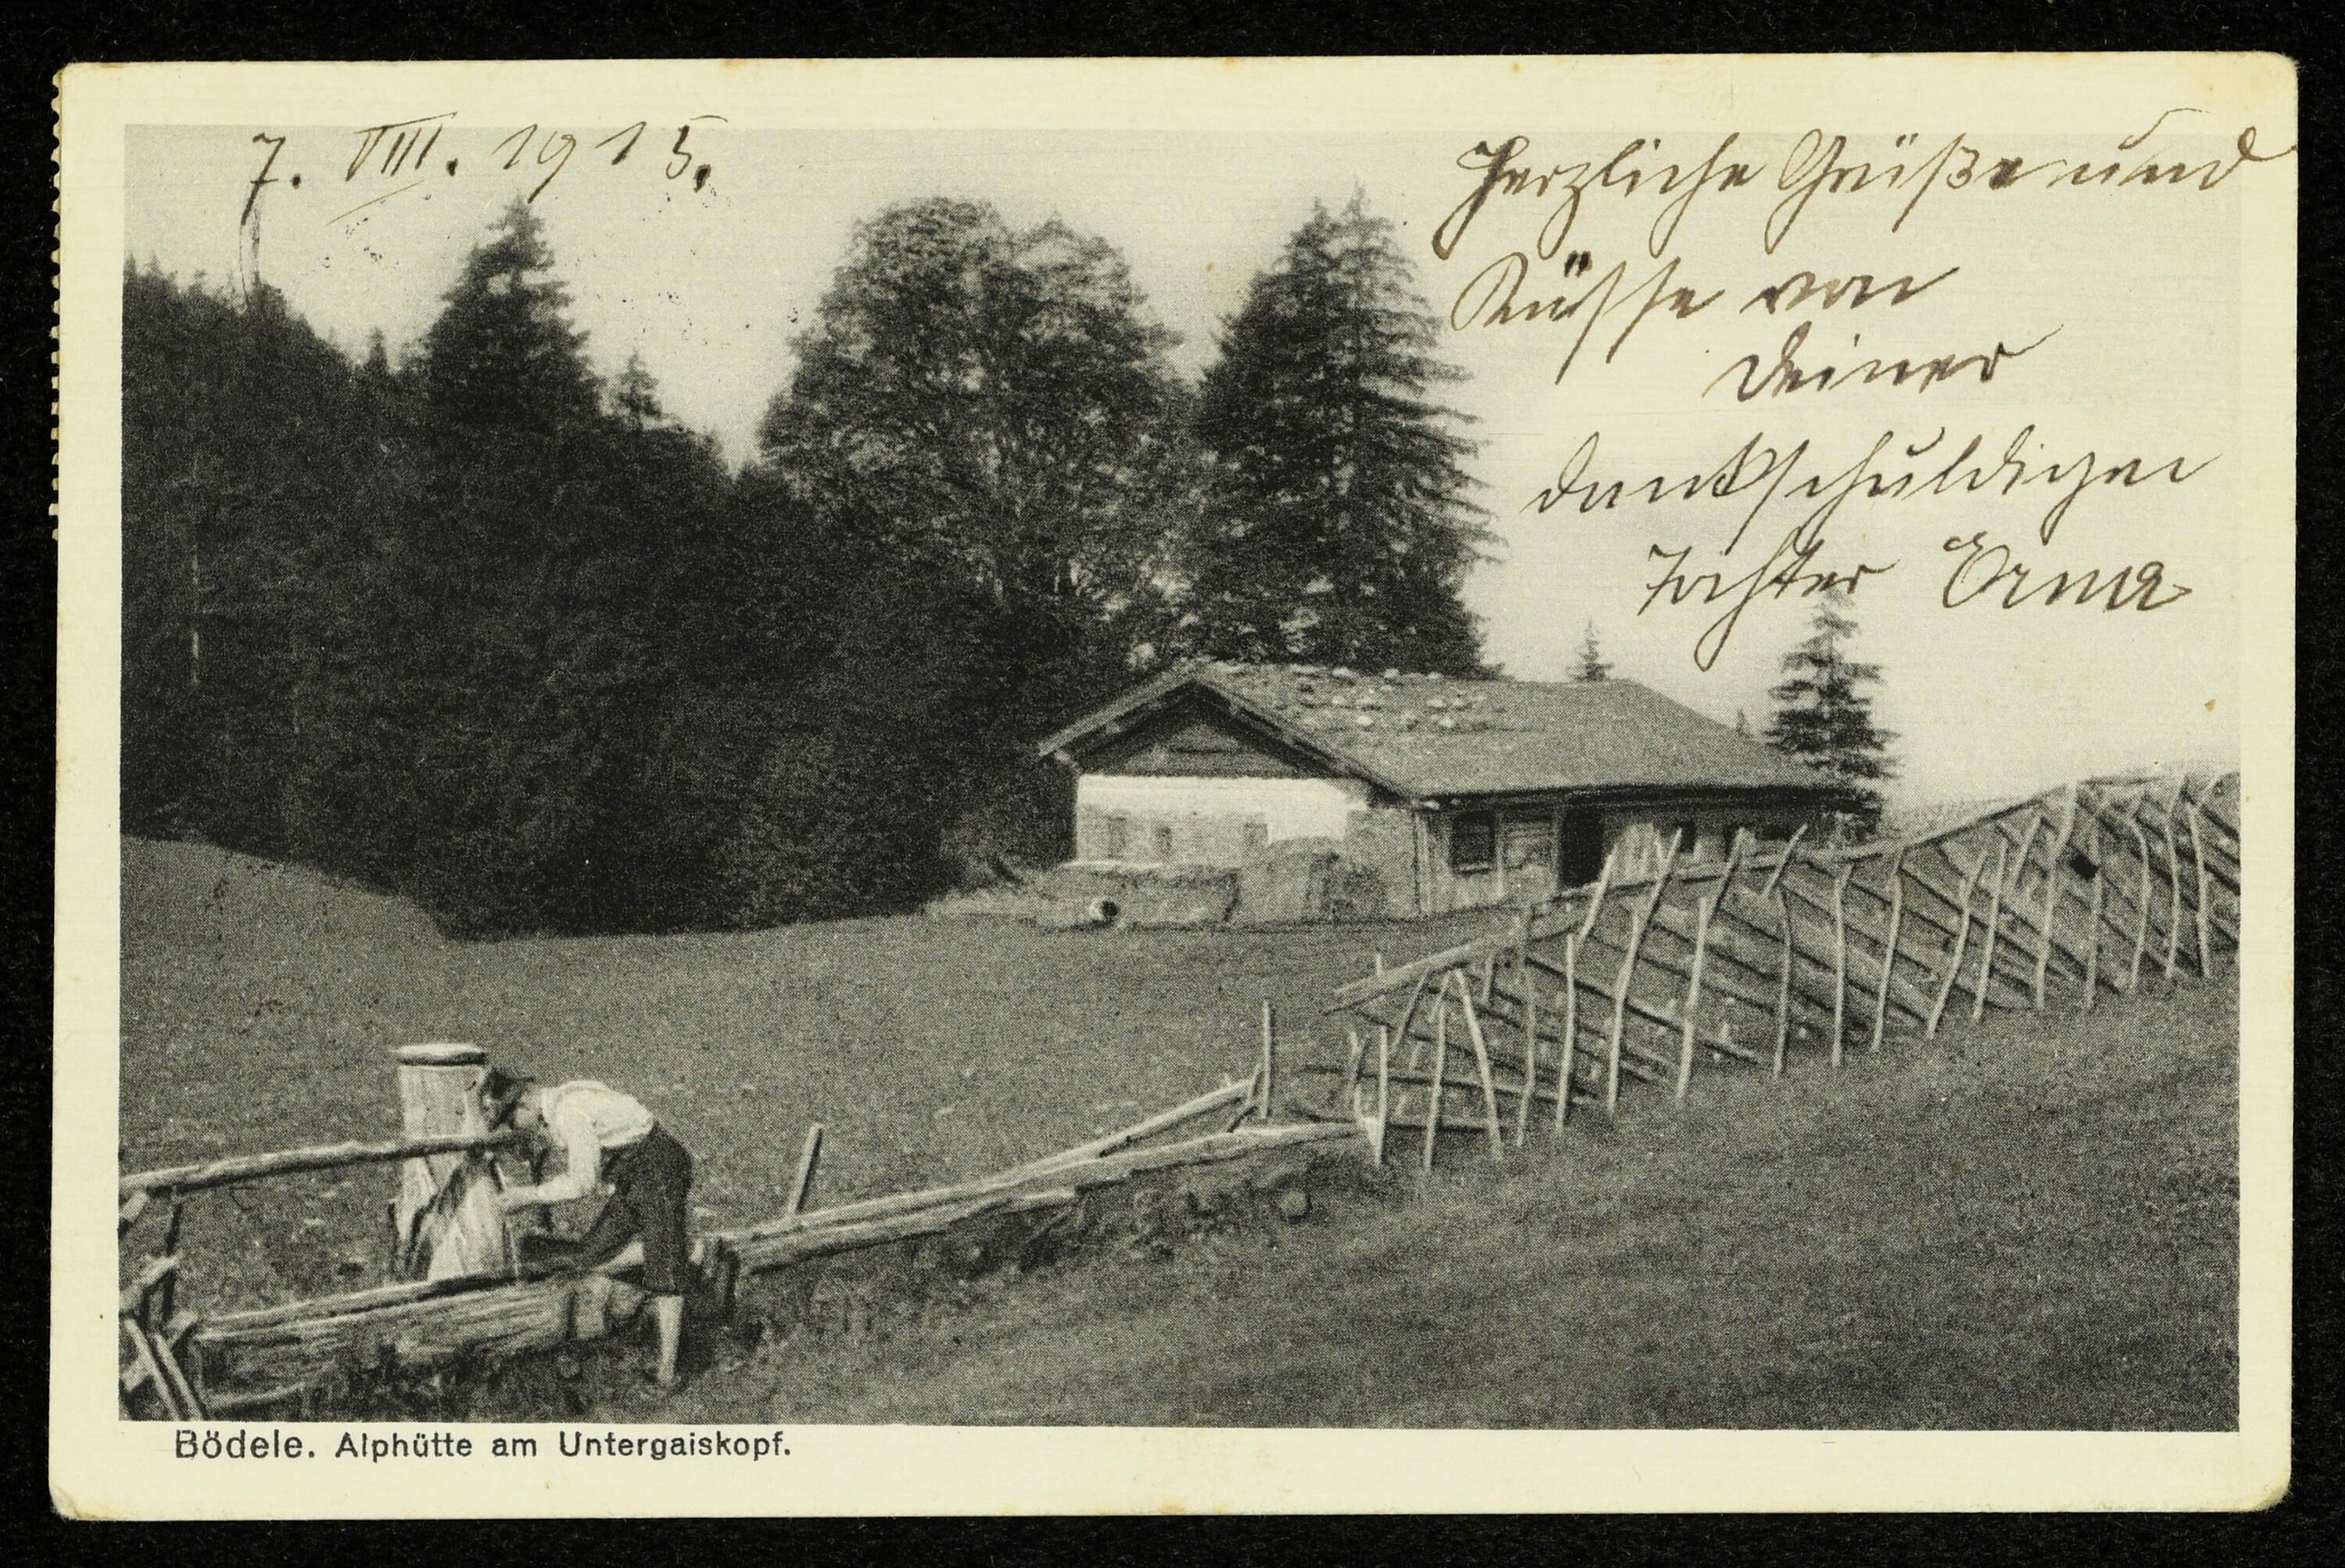 7. VIII. 1915.
Herzliche Grüße und
Küsse von
Deiner
dankschuldigen
Tochter Erna
Bödele. Alphütte am Untergaiskopf.